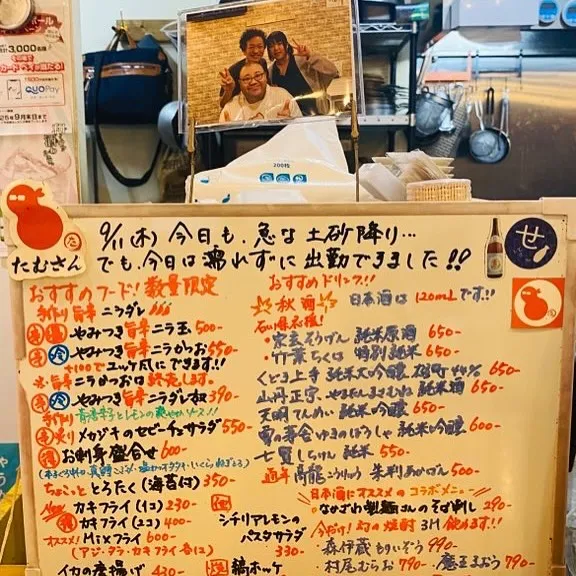 3,000名様
QUOPay
25年9月末日まで
200枚
たむさん
9/11(木)今日も、急な土砂降り…
でも、今日は濡れずに出勤できました!!
せ
おすすめフード!数量限定
手作り旨辛ニラダレ
やみつき旨辛ニラ玉 500-
冷 やみつき旨辛ニラかつお 550
+100でユッケ風にできます!!
旨辛ニラかつおは終売します。
冷 やみつき旨辛ニラダレ奴 390-
手作り 青唐辛子とレモンの爽やかソース!!
炙り メカジキのセビーチェサラダ 550-
お刺身盛合せ 600-
ちょこっと とろたく(海苔付) 350-
New カキフライ(1コ) 230-
カキフライ(2コ) 400-
オススメ! Mixフライ 600-
(アジ・タラ・カキフライ各1コ)
イカの唐揚げ 430-
シチリアレモンの
パスタサラダ
330-
縞ホッケ
おすすめドリンク!!
秋酒 日本酒は120mLです!!
純米原酒 650-
・竹葉 ちくは 特別純米 650-
くどき上手 純米大吟醸 雄町44% 650-
山丹正宗 やまたんまさむね 純米酒 650-
天明 てんめい 純米吟醸 650-
雪の茅舎 ゆきのぼうしゃ 純米吟醸 600-
七賢 しちけん 純米 550-
500-
日本酒にオススメのコラボメニュー
なかざわ製麺さんのそば刺し 290-
今だけ!幻の焼酎3M飲めます!!
・森伊蔵 もりいぞう 990-
・村尾 むらお 790-
・魔王 まおう 790-